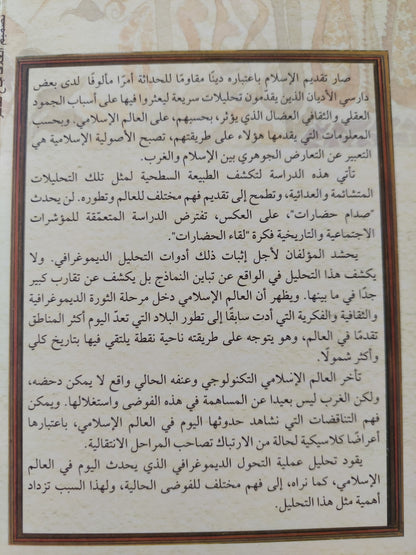 صار تقديم الإسلام باعتباره دينًا مقاومًا للحداثة أمرًا مألوفًا لدى بعض
دارسي الأديان الذين يقدّمون تحليلات سريعة ليعثروا فيها على أسباب الجمود
العقلي والثقافي العضال الذي يؤثر، بحسبهم، على العالم الإسلامي. وبحسب
المعلومات التي يقدمها هؤلاء على طريقتهم، تصبح الأصولية الإسلامية هي
التعبير عن التعارض الجوهري بين الإسلام والغرب.
تأتي هذه الدراسة لتكشف الطبيعة السطحية لمثل تلك التحليلات
المتشائمة والعدائية، وتطمح إلى تقديم فهم مختلف للعالم وتطوره. لن يحدث
"صدام حضارات"، على العكس، تفترض الدراسة المتعمّقة للمؤشرات
الاجتماعية والتاريخية فكرة "لقاء الحضارات".
يحشد المؤلفان لأجل إثبات ذلك أدوات التحليل الديموغرافي. ولا
يكشف هذا التحليل في الواقع عن تباين النماذج بل يكشف عن تقارب كبير
جدًا في ما بينها. ويظهر أن العالم الإسلامي دخل مرحلة الثورة الديموغرافية
والثقافية والفكرية التي أدت سابقًا إلى تطور البلاد التي تعدّ اليوم أكثر المناطق
تقدمًا في العالم، وهو يتوجه على طريقته ناحية نقطة يلتقي فيها بتاريخ كلي
وأكثر شمولًا.
تأخر العالم الإسلامي التكنولوجي وعنفه الحالي واقع لا يمكن دحضه،
ولكن الغرب ليس بعيدا عن المساهمة في هذه الفوضى واستغلالها. ويمكن
فهم التناقضات التي نشاهد حدوثها اليوم في العالم الإسلامي، باعتبارها
أعراضًا كلاسيكية لحالة من الارتباك تصاحب المراحل الانتقالية.
يقود تحليل عملية التحول الديموغرافي الذي يحدث اليوم في العالم
الإسلامي، كما نراه، إلى فهم مختلف للفوضى الحالية، ولهذا السبب تزداد
أهمية مثل هذا التحليل.